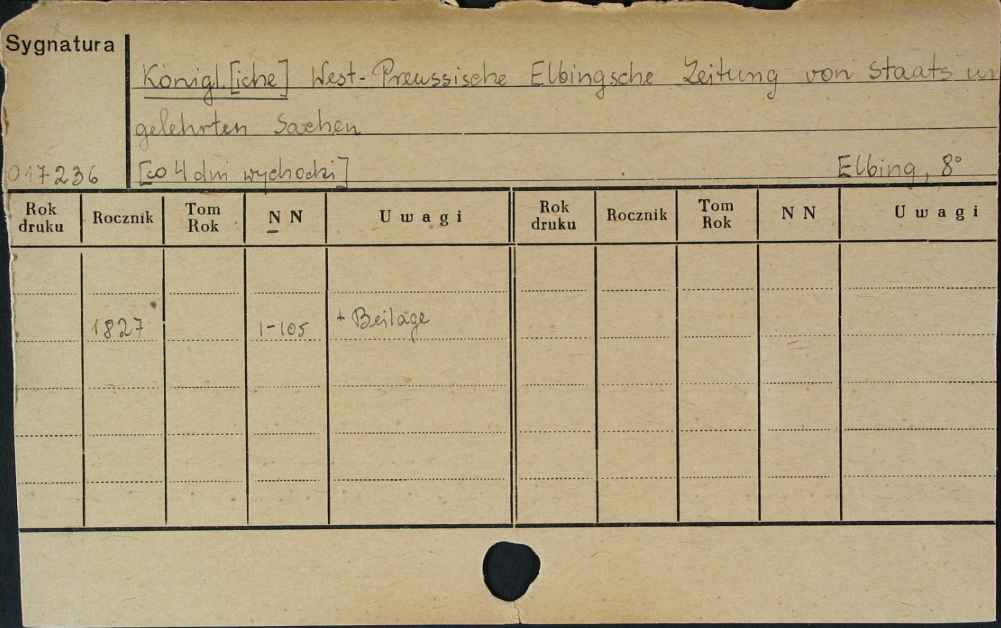 Sygnatura
Königl.[iche] West-Preussische Elbingsche Zeitung von Staats un
gelehrten Sachen
017236 [co 4 dni wychodzi] Elbing, 8°
Rok druku Rocznik Tom Rok N N Uwagi Rok druku Rocznik Tom Rok N N Uwagi
1827 1-105 + Beilage